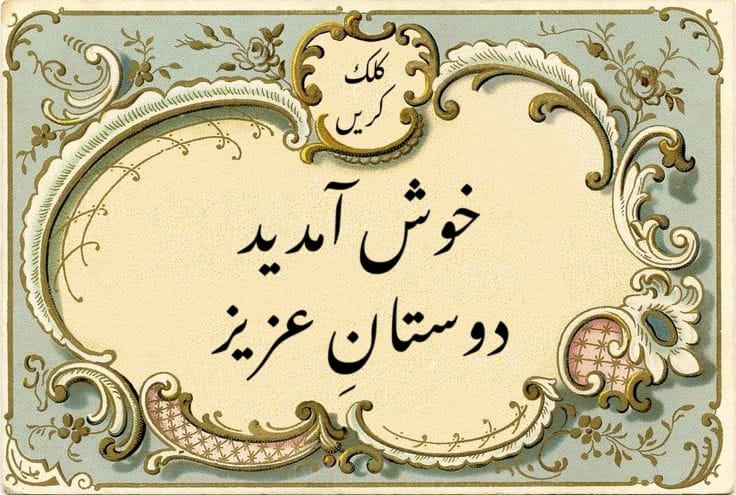 کلک
کریں
خوش آمدید
دوستانِ عزیز